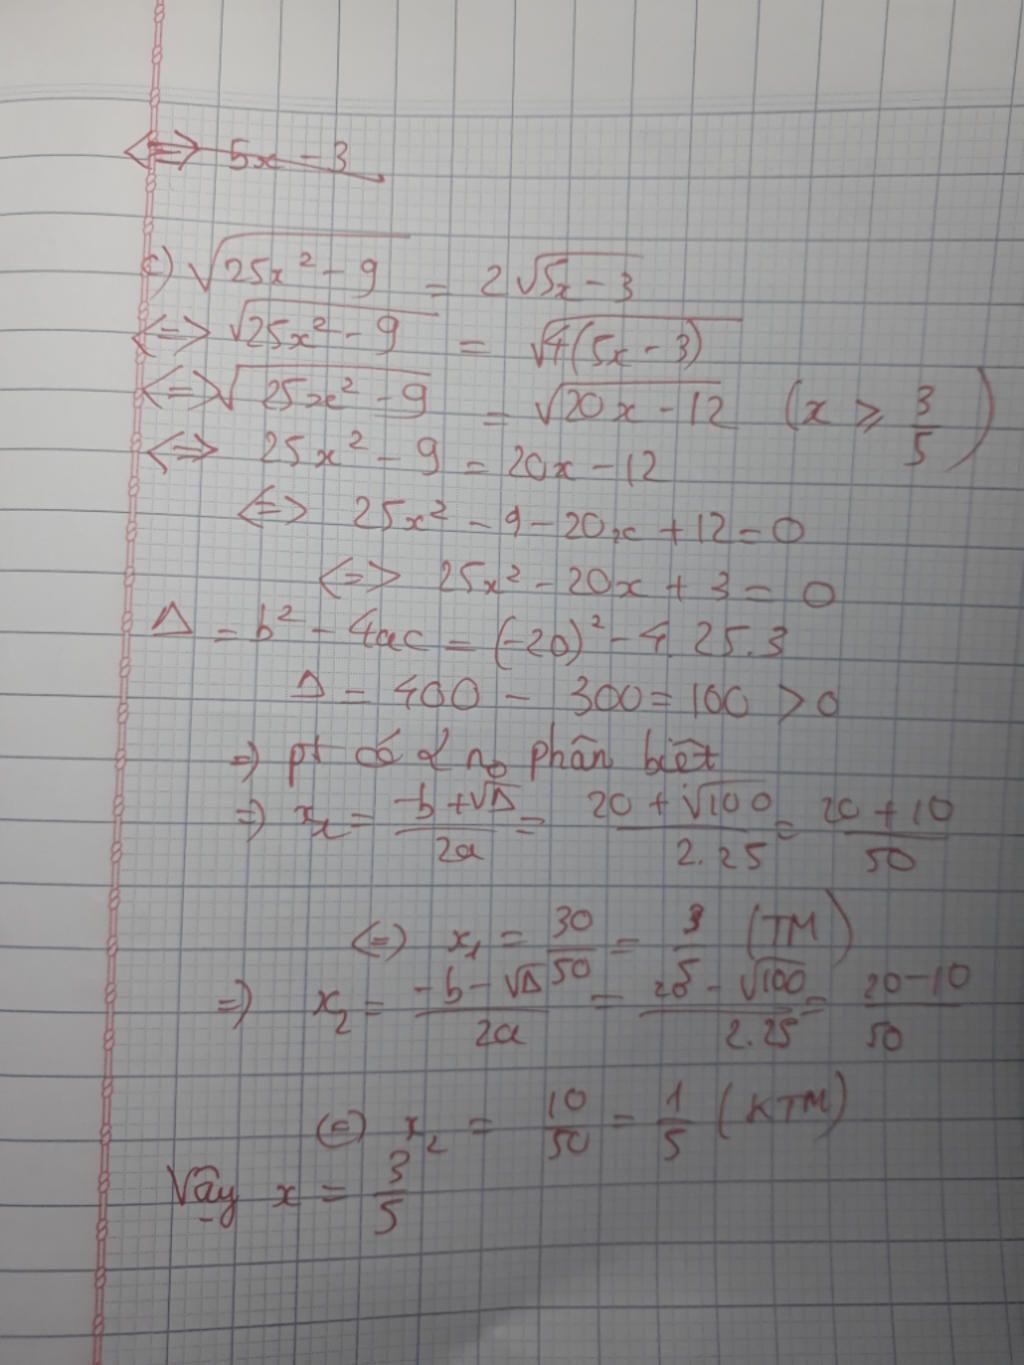 <=> 5x - 3
c) √(25x² - 9) = 2√(5x - 3)
<=> √(25x² - 9) = √(4(5x - 3))
<=> √(25x² - 9) = √(20x - 12) (x ⩾ 3/5)
<=> 25x² - 9 = 20x - 12
<=> 25x² - 9 - 20x + 12 = 0
<=> 25x² - 20x + 3 = 0
Δ = b² - 4ac = (-20)² - 4.25.3
Δ = 400 - 300 = 100 > 0
=) pt có 2 no phân biệt
=) x₁ = (-b + √Δ)/2a = (20 + √100)/2.25 = (20 + 10)/50
(=) x₁ = 30/50 = 3/5 (TM)
=) x₂ = (-b - √Δ)/2a = (20 - √100)/2.25 = (20 - 10)/50
(=) x₂ = 10/50 = 1/5 (KTM)
Vậy x = 3/5